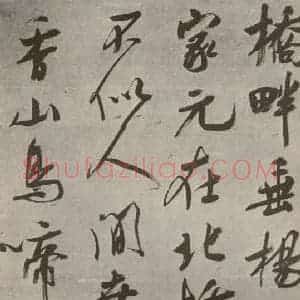 橋畔垂楊
家元在北
不似人間
香山鳥啼
shufaziliao.com